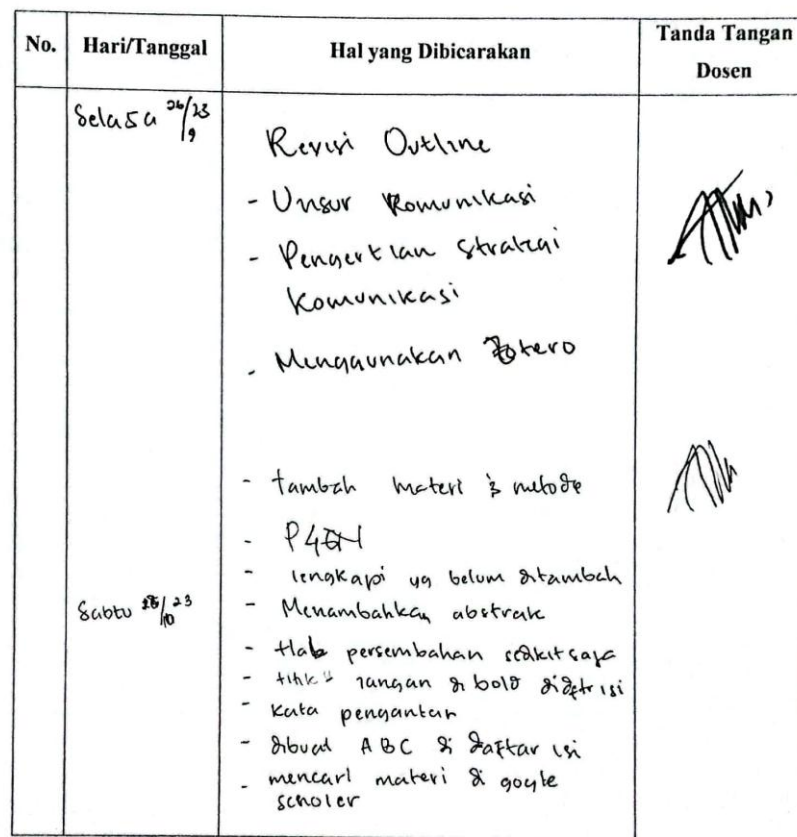 No. Hari/Tanggal Hal yang Dibicarakan Tanda Tangan Dosen
Selasa 26/23 9
Revisi Outline
- Unsur Komunikasi
- Pengertian Strategi
Komunikasi
- Menggunakan Zotero
- tambah materi & metode
- P4GN
- lengkapi yg belum ditambah
Sabtu /23 10
- Menambahkan abstrak
- Hal persembahan sedikit saja
- titik" jangan di bold didftr isi
- Kata pengantar
- dibuat ABC di daftar isi
- mencari materi di google
scholer